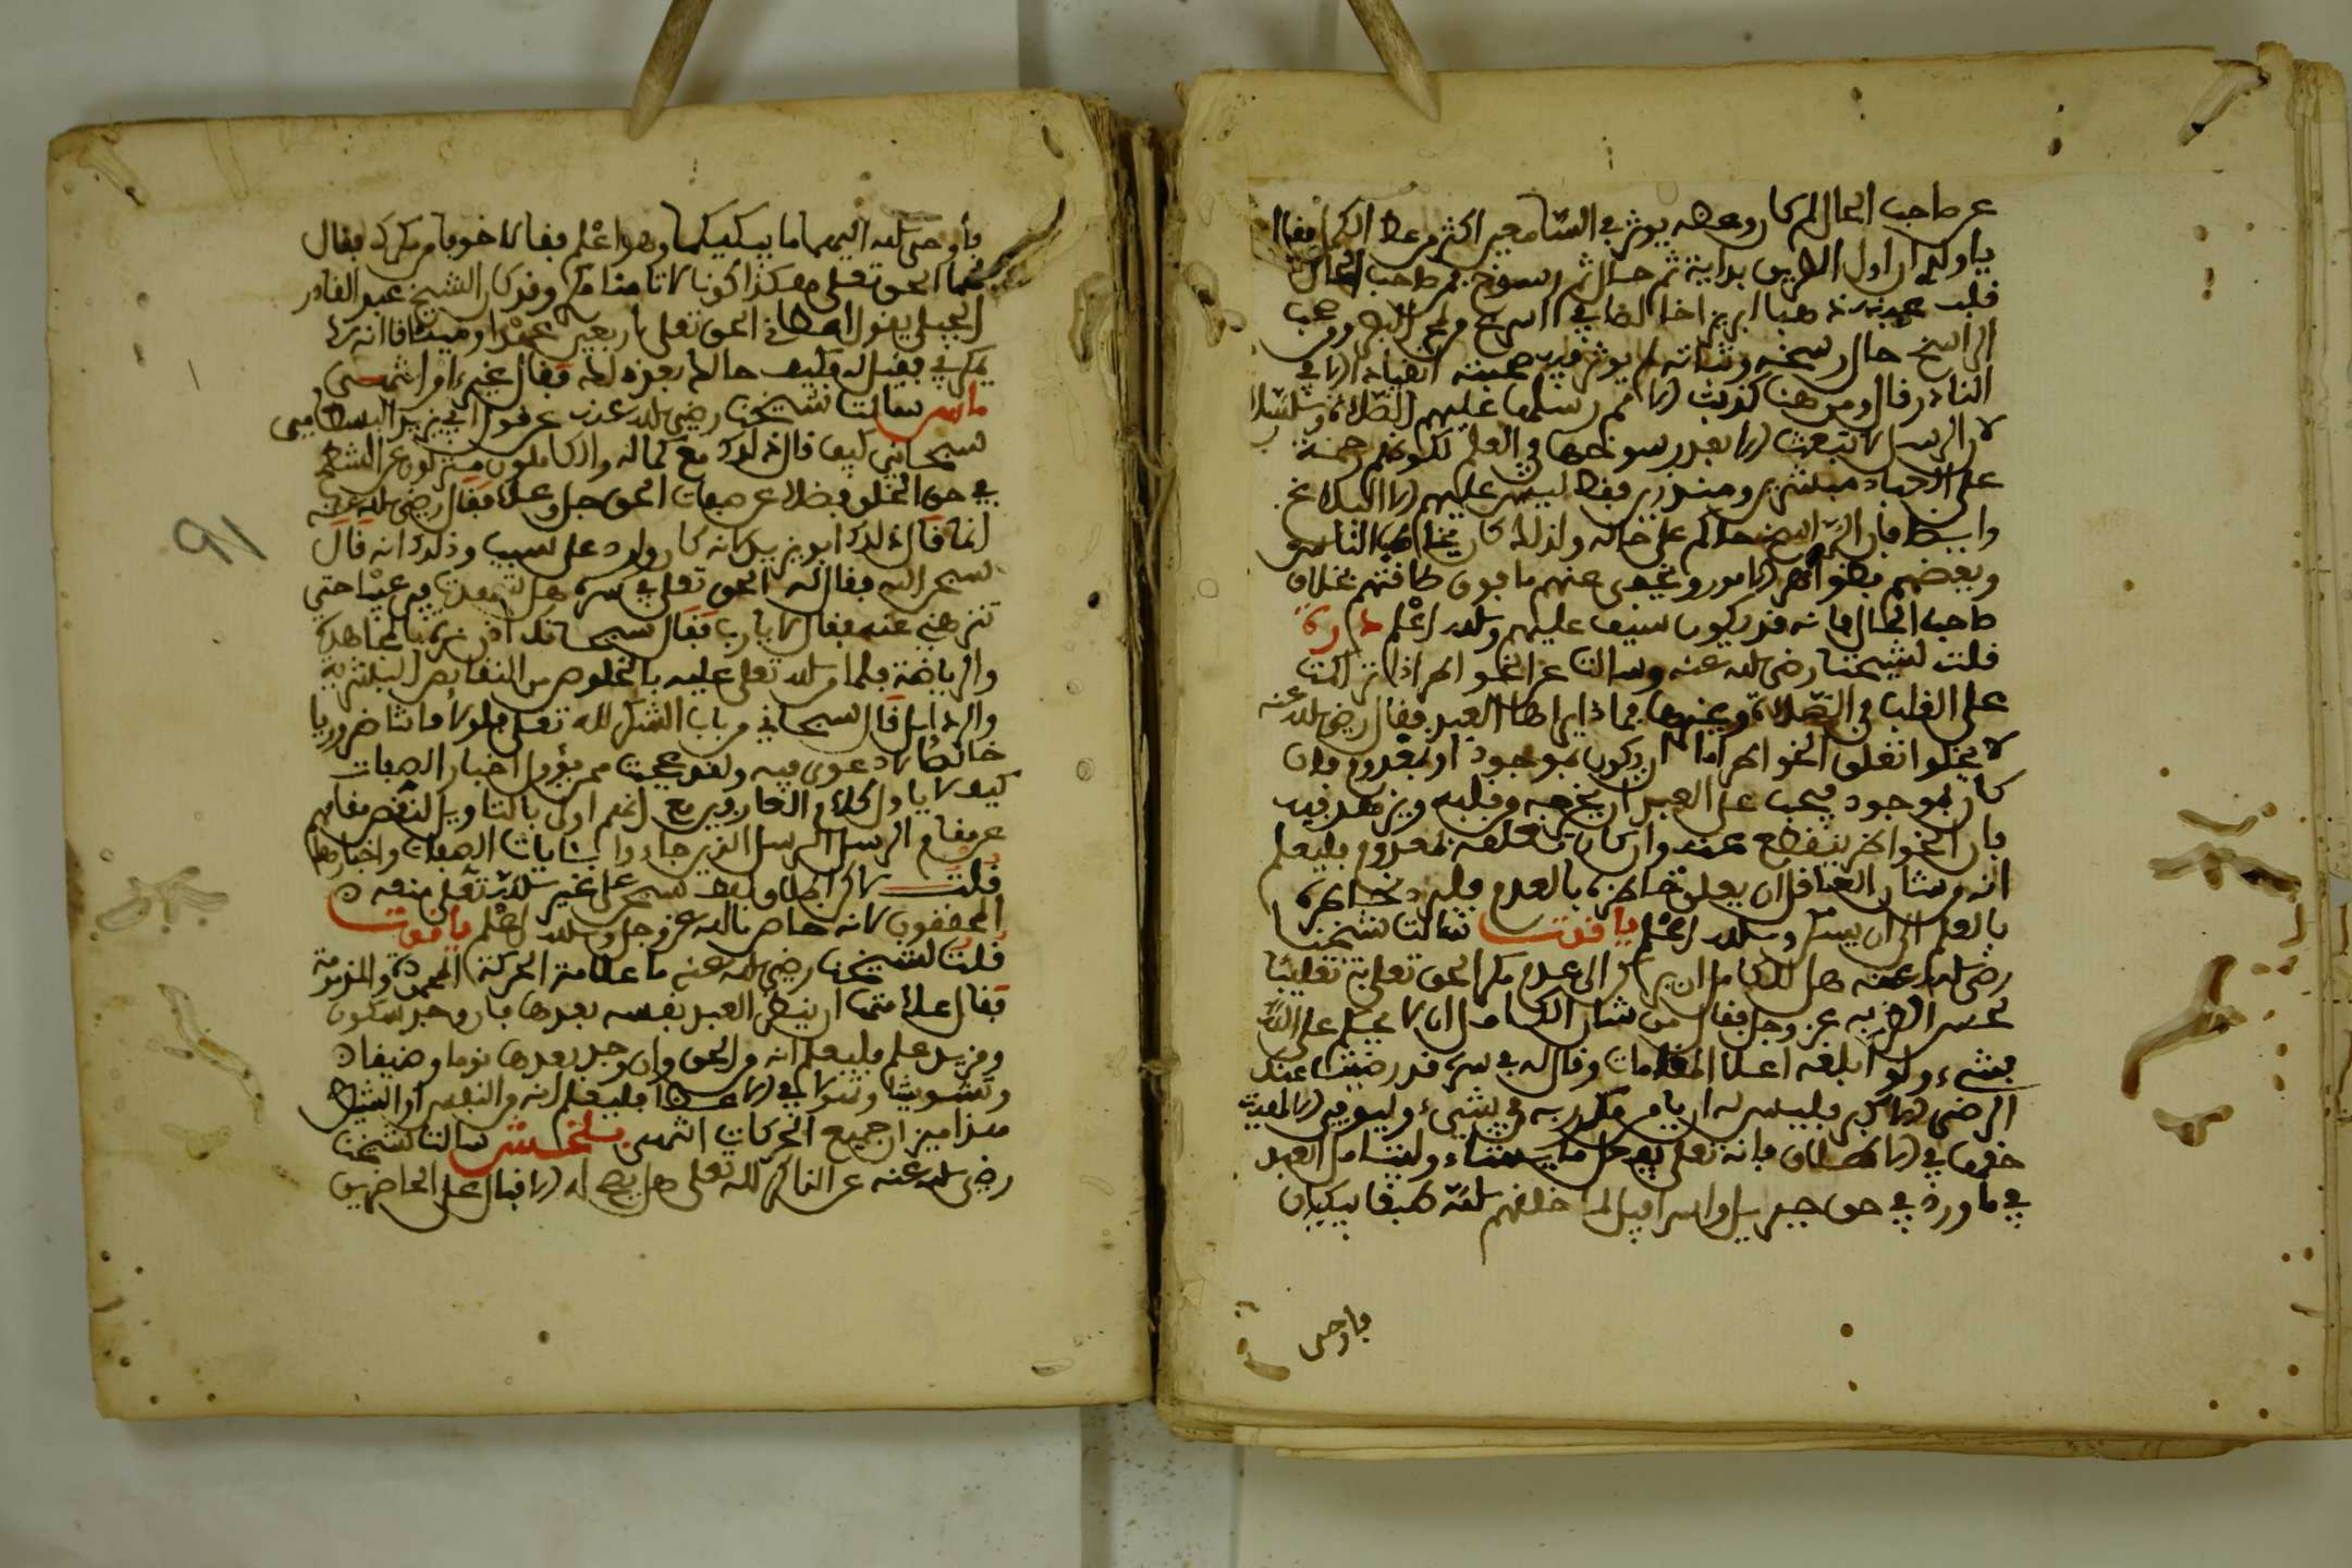 عن صاحب الحال لم كان وعظه يوثر في السامعين اكثر من وعظ الكمل فقال
يا ولدي ان اول الطريق بداية ثم حال ثم رسوخ فمن صاحب الحال
قلب عينه ذهبا ابريز اخالصا في اسرع من لمح البصر ومن صحب
الراسخ حال رسخه وثباته لا يوثر فيه صحبته انقياد الا في
النادر قال ومن هنا كذبت الامم رسلها عليهم الصلاة والسلام
لان الرسل لا تبعث الا بعد رسوخها في العلم لكونهم رحمة
على العباد مبشرين ومنذرين فقط ليس عليهم الا البلاغ
وايضا فان الراسخ حاكم على حاله ولذلك كان يخاطب الناس
وبعضهم بظواهر الامور ويخفى عنهم ما فوق طاقتهم بخلاف
صاحب الحال فانه قد يكون سيف عليهم والله اعلم درة
قلت لشيخنا رضي الله عنه وسالته عن الخواطر اذا تراكمت
على القلب في الصلاة وغيرها بماذا يزاحمها العبد فقال رضي الله عنه
لا يخلوا تعلق الخواطر اما ان يكون بموجود او بمعدوم فان
كان بموجود فيجب على العبد ان يخرجه من قلبه ويزهد فيه
فان الخواطر ينقطع عنه وان كان متعلقه لمعدوم فليعلم
انه من شان العاقل ان يعلق خاطره بالعدم فليرد خاطره
بالعلم الى ان يسكن والله اعلم ياقوت سالت شيخنا
رضي الله عنه هل للكامل ان يركن الى عدم مكر الحق تعلى به تغليبا
لحسن الظن به عز وجل فقال من شان الكامل ان لا يحكم على الله
بشيء ولو ابلغه اعلا المقامات وقال له في سره قد رضيت عنك
الرضى الاكبر فليس له ان يامن مكر ربه في شيء وليوف الالوهية
حقها في الاطلاق فانه تعلى يفعل ما يشاء وليتامل العبد
في ما ورد في حق جبريل واسرافيل لما خلقهم الله طبقا يبكيان
فاوحى
فاوحى الله اليهما ما يبكيكما وهو اعلم فقالا خوفا من مكرك فقال
لهما الحق تعلى هكذا كونا لا تامنا مكري وقد كان الشيخ عبد القادر
الجيلي يقول اعطاني الحق تعلى اربعين عهدا وميثاقا انه لا
يمكر بي فقيل له فكيف حالك بعد ذلك فقال غير او انتهى
ماس سالت شيخنا رضي الله عنه عن قول ابي يزيد البسطامي
سبحاني كيف قال ذلك مع كماله والكاملون منزهون عن الشطح
في حق الخلق فضلا عن صفات الحق جل وعلا فقال رضي الله عنه
انما قال ذلك ابو يزيد لانه كان ولد على سبب وذلك انه قال
سبحن الله فقال له الحق تعلى في سره هل تعهد في عيبا حتى
تنزهني عنه فقال لا يا رب فقال سبحانك اذن نزه بالمجاهدة
والرياضة فلما من الله تعلى عليه بالخلوص من النقايص البشرية
والرذايل قال سبحاني من باب الشكر لله تعلى قولا فاشا ضروريا
خالصا لا دعوى فيه ولقد عجبت ممن يؤول اخبار الصفات
كيف لا ياول كلام العارفين مع انهم اولى بالتاويل لنقص مقامهم
عن مقام الرسل الرسل الذين جاءوا بايات الصفات واخبارها
قلت لاكن اطلاق لفظ سبحن على غير الله تعلى منعه
المحققون لانه خاص بالله عز وجل والله اعلم ياقوت
قلت لشيخنا رضي الله عنه ما علامة الحركة المحمودة والمذمومة
فقال علامتها ان ينظر العبد نفسه بعدها فان وجد سكون
ومزيد علم فليعلم انه من الحق وان وجد بعدها ندما وضيقا
وتشويشا وتنوا في الاعضا فليعلم انه من النفس او الشيطان
هذا ميزان جميع الحركات انتهى بلخش سالت شيخنا
رضي الله عنه عن الذاكر لله تعلى هل يصح له الاقبال على الحاضرين
91